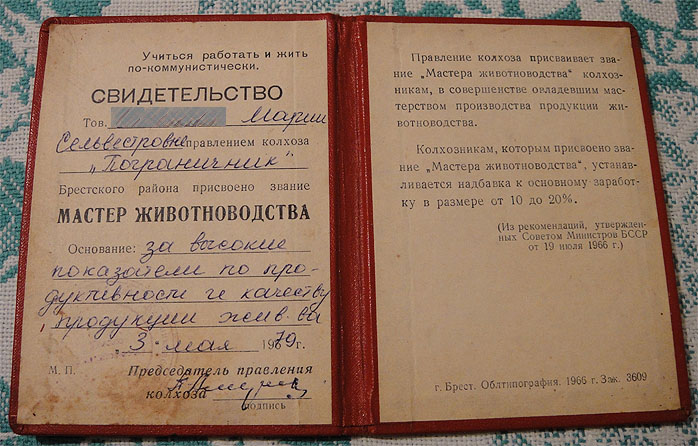 Учиться работать и жить
по-коммунистически.
СВИДЕТЕЛЬСТВО
Тов. Марии
Сельвестровне правлением колхоза
„Пограничник"
Брестского района присвоено звание
МАСТЕР ЖИВОТНОВОДСТВА
Основание: за высокие
показатели по про-
дуктивности и качеству
продукции жив-ва
3 мая 1979г.
М. П. Председатель правления
колхоза
подпись
Правление колхоза присваивает зва-
ние „Мастера животноводства" колхоз-
никам, в совершенстве овладевшим мас-
терством производства продукции жи-
вотноводства.
Колхозникам, которым присвоено зва-
ние „Мастера животноводства", устанав-
ливается надбавка к основному заработ-
ку в размере от 10 до 20%.
(Из рекомендаций, утвержден-
ных Советом Министров БССР
от 19 июля 1966 г.)
г. Брест. Облтипография. 1966 г. Зак. 3609